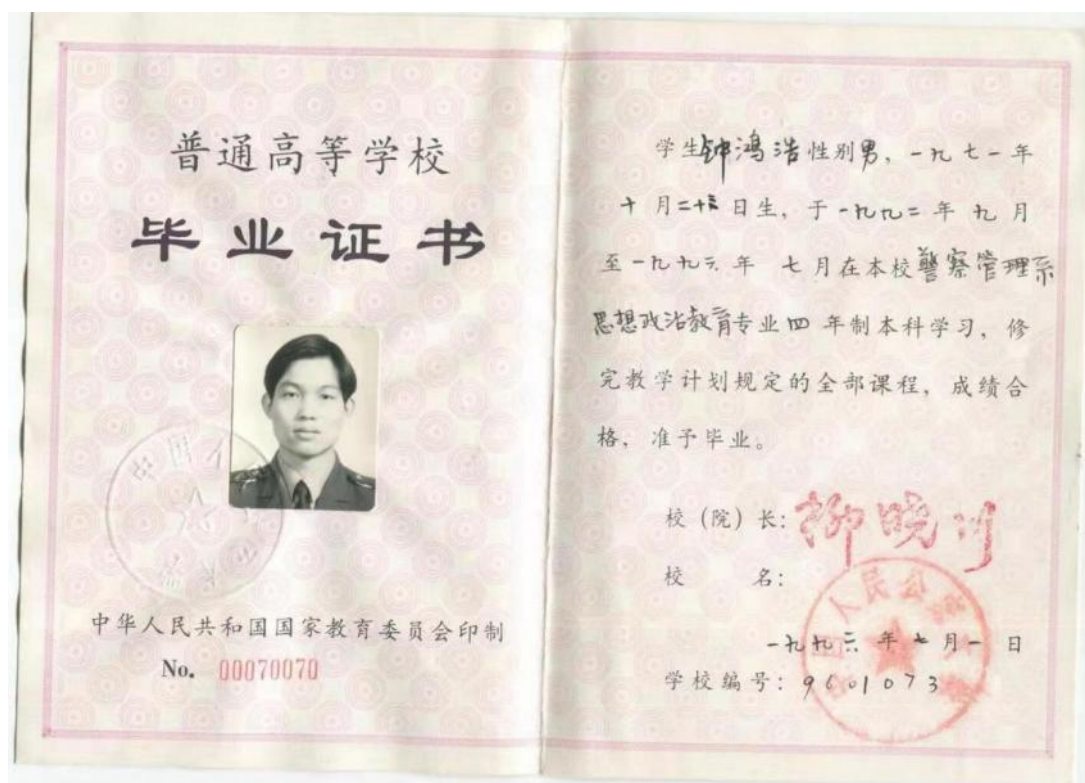 普通高等学校
毕业证书
中华人民共和国国家教育委员会印制
No. 00070070
学生钟鸿浩性别男，一九七一年
十月二十六日生，于一九九二年九月
至一九九六年 七月在本校警察管理系
思想政治教育专业四年制本科学习，修
完教学计划规定的全部课程，成绩合
格，准予毕业。
校（院）长：柳晓川
校 名：
一九九六年七月一日
学校编号：9601073